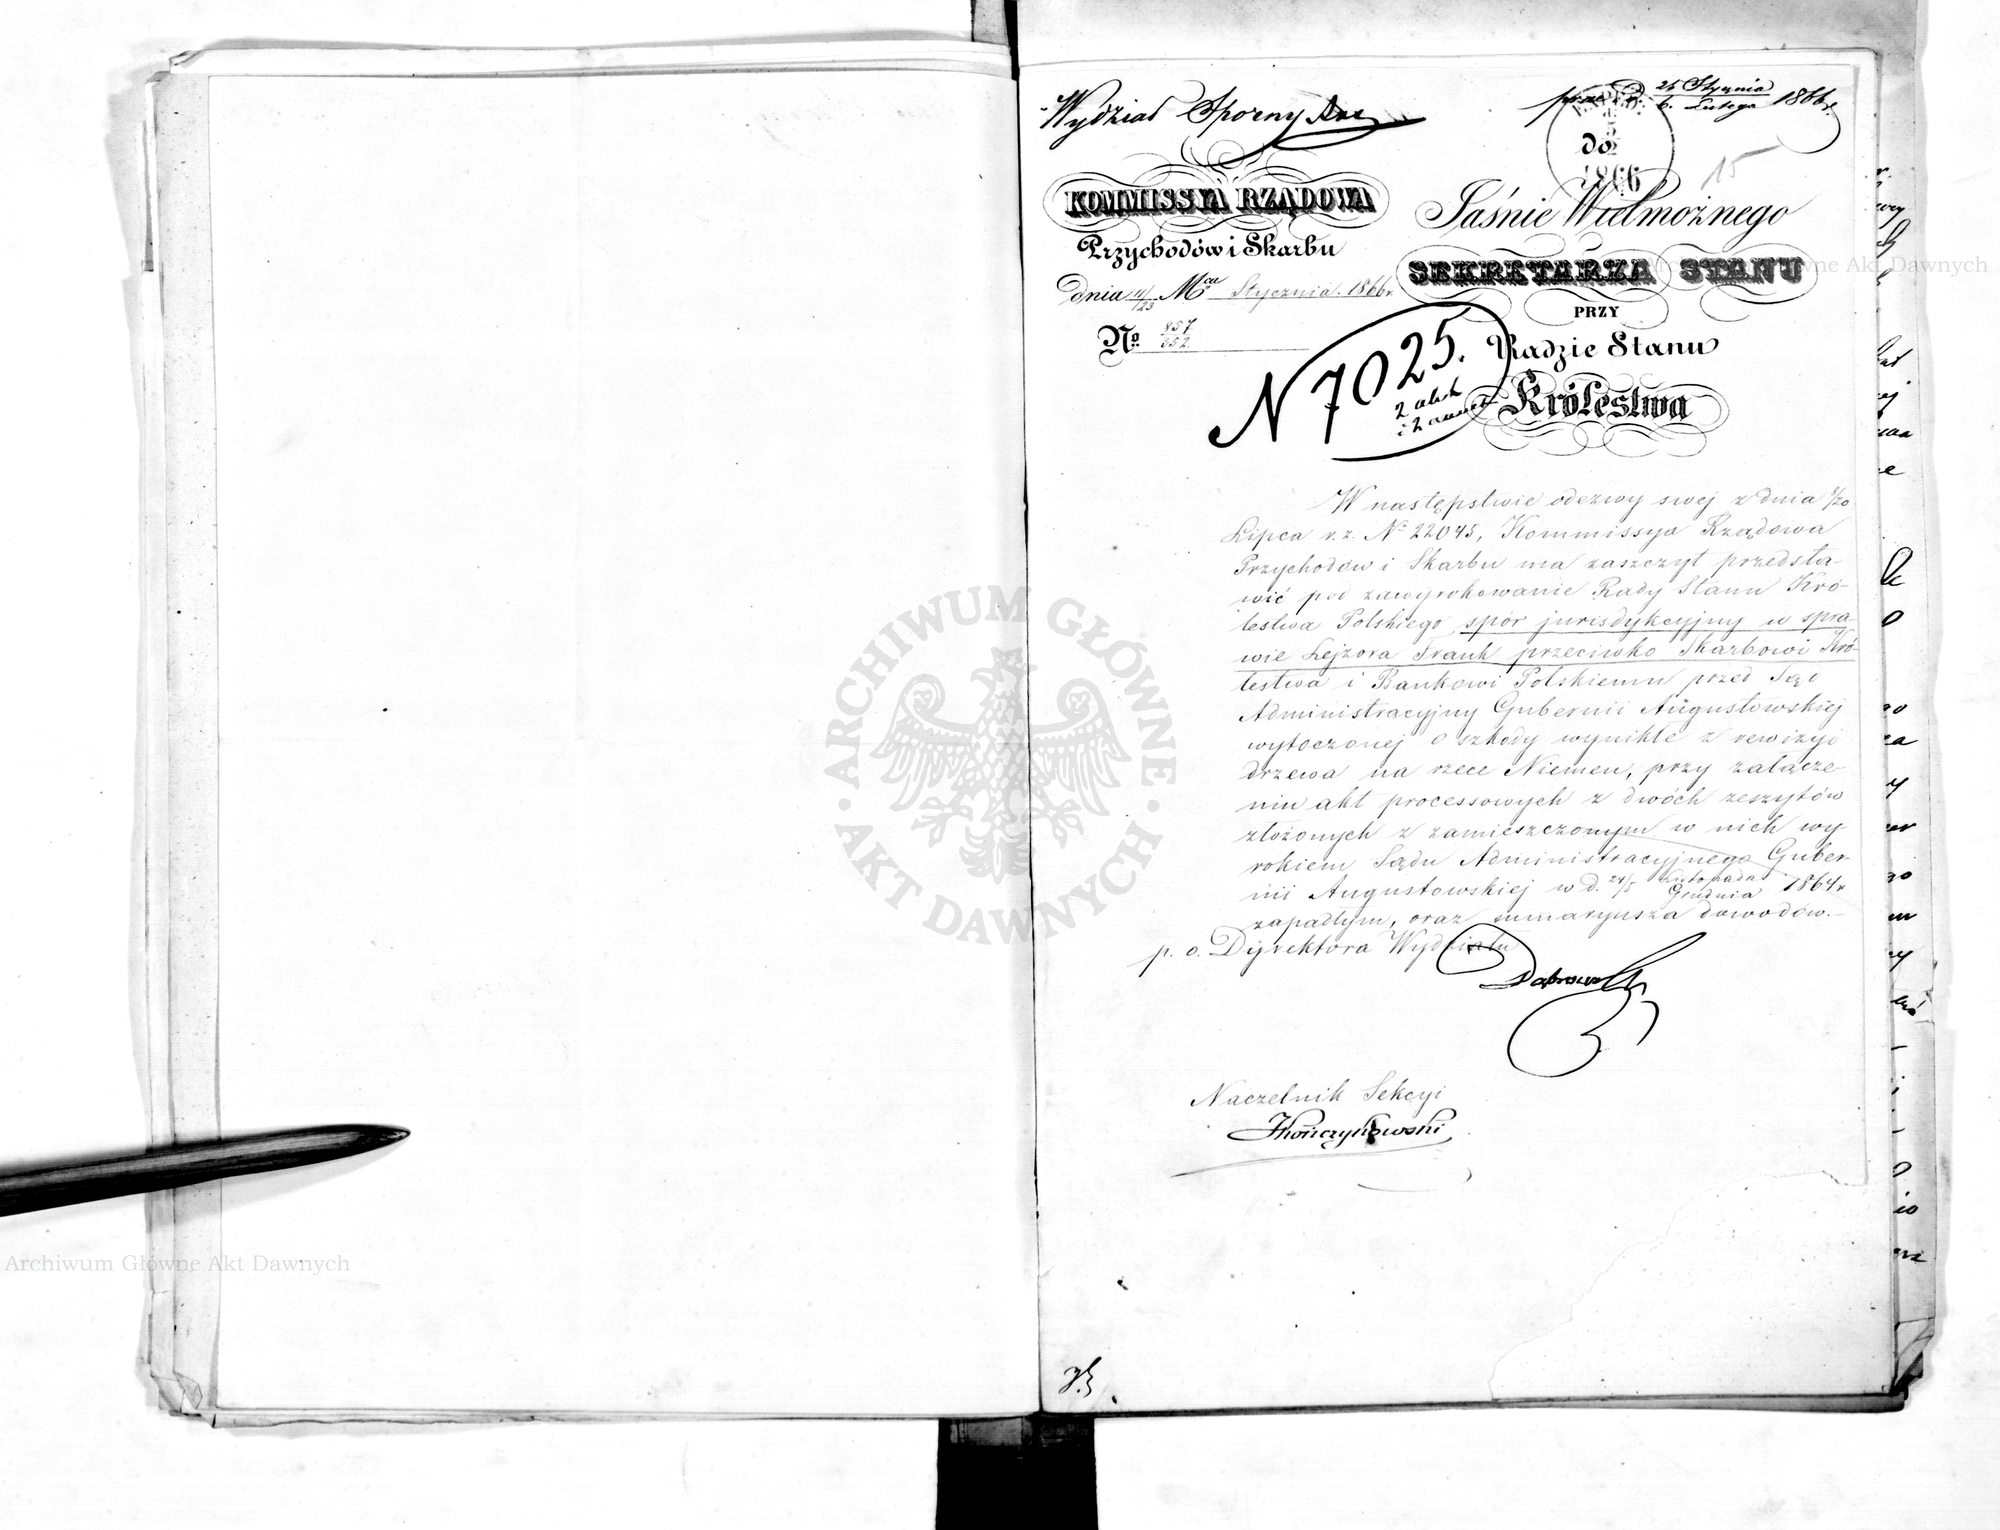 Wydział Sporny
prez. d. 25 Stycznia / 6. Lutego 1866 r.
5
1866
15
KOMMISSYA RZĄDOWA
Przychodów i Skarbu
dnia 11/23 Mca Stycznia 1866 r.
No. 857/652
do
Jaśnie Wielmożnego
SEKRETARZA STANU
PRZY
Radzie Stanu
Królestwa
N 7025.
W następstwie odezwy swej z dnia 8/20
Lipca r. z. No 22045, Kommissya Rządowa
Przychodów i Skarbu ma zaszczyt przedsta-
wić pod zawyrokowanie Rady Stanu Kró-
lestwa Polskiego spór jurisdykcyjny w spra-
wie Lejzora Frank przeciwko Skarbowi Kró-
lestwa i Bankowi Polskiemu przed Sąd
Administracyjny Gubernii Augustowskiej
wytoczonej o szkody wynikłe z rewizyi
drzewa na rzece Niemen, przy załącze-
niu akt processowych z dwóch zeszytów
złożonych z zamieszczonym w nich wy-
rokiem Sądu Administracyjnego Guber-
nii Augustowskiej w d. Listopada / Grudnia 1864 r.
zapadłym, oraz sumaryusza dowodów.-
p. o. Dyrektora Wydziału
Naczelnik Sekcyi
ARCHIWUM GŁÓWNE
AKT DAWNYCH
Archiwum Główne Akt Dawnych
Archiwum Główne Akt Dawnych